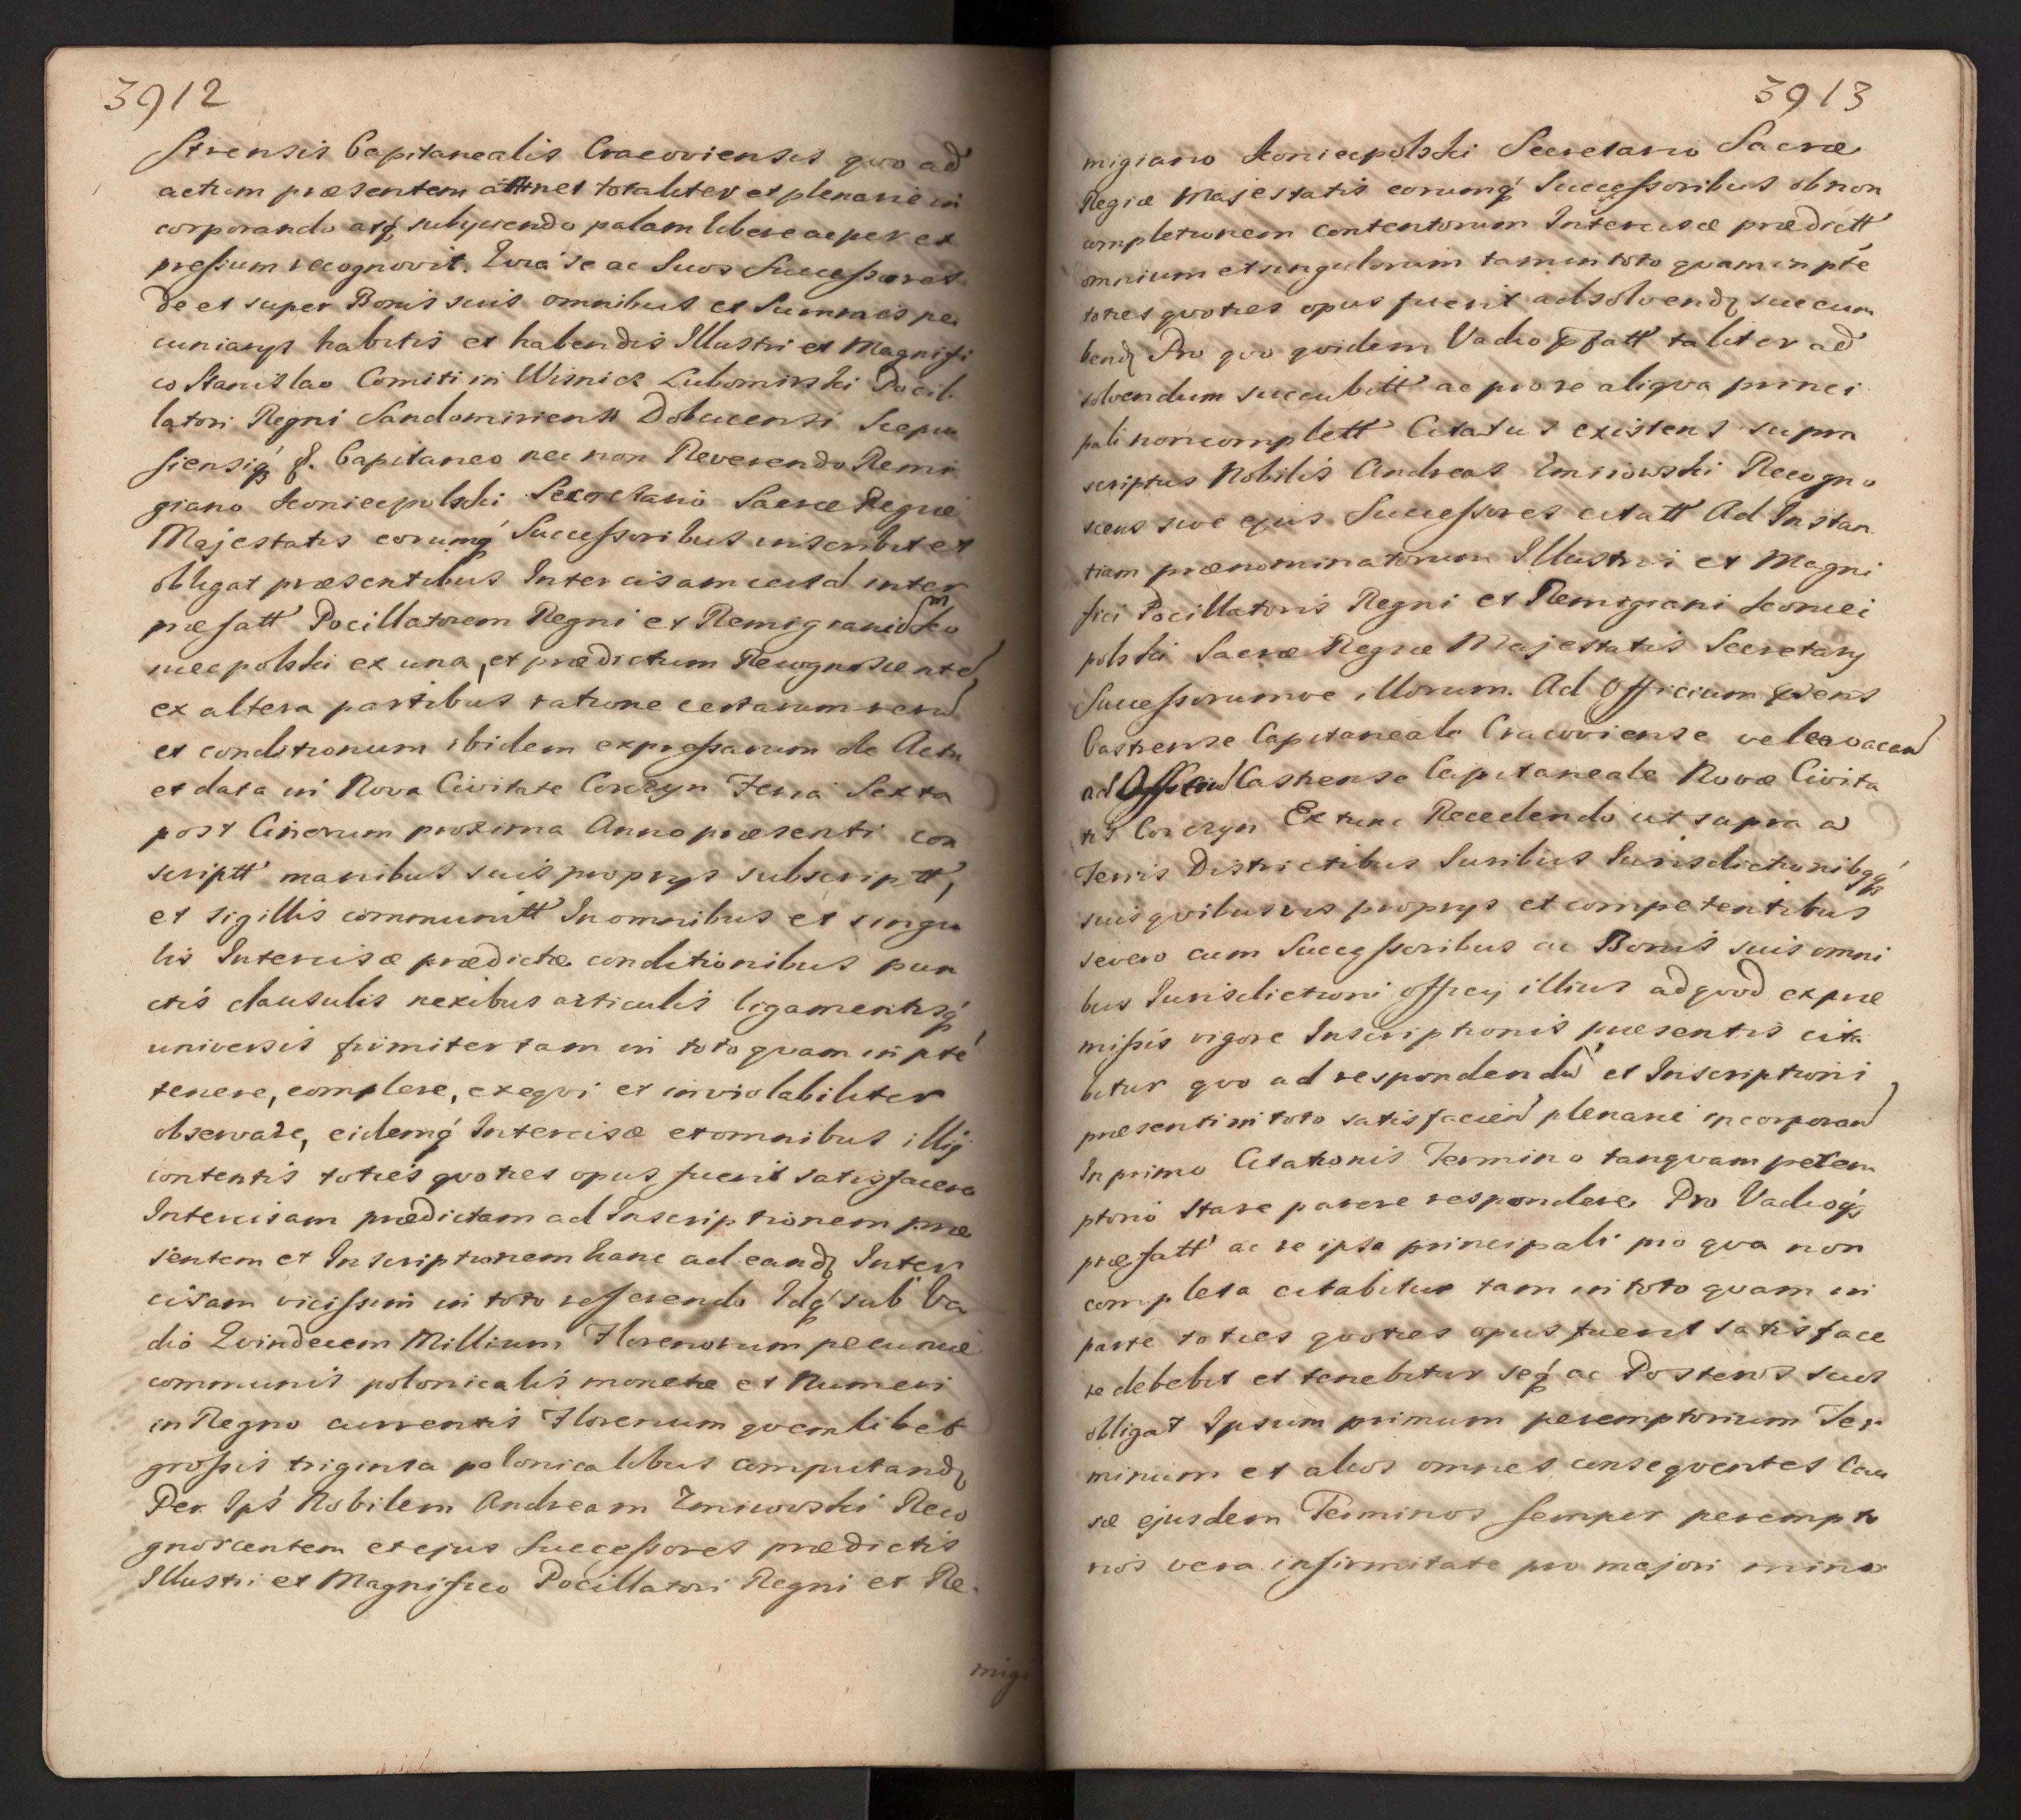 3912
strensis Capitanealis Cracoviensis quo ad
actum præsentem attinet totaliter et plenarie in
corporando atq subijciendo palam libere ac per ex
pressum recognovit. Quia se ac Suos Successores
de et super Bonis suis omnibus et Summis pe
cuniarijs habitis et habendis Illustri et Magnifi
co Stanislao Comiti in Wisnicz Lubomirski Pocil.
latori Regni Sandomiriens Dobucensi Scepu
siensiq́ &. Capitaneo nec non Reverendo Remi
giano Koniecpolski Secretario Sacræ Regiæ
Majestatis eorumq́ Successoribus inscribit et
obligat præsentibus Intercisam certā inter
præfatt Pocillatorem Regni et Remigianum Ko
niecpolski ex una, et prædictum Recognoscente
ex altera partibus ratione certarum rerū
et conditionum ibidem expressarum de Actu
et data in Nova Civitate Corczyn Feria Sexta
post Cinerum proxima Anno præsenti con
scriptt manibus suis proprijs subscriptt,
et sigillis communitt In omnibus et singu
lis Intercisæ prædictæ conditionibus pun
ctis clausulis nexibus articulis ligamentisq́
universis firmiter tam in toto quam in pte
tenere, complere, exequi et inviolabiliter
observare, eidemq́ Intercisæ et omnibus illij
contentis toties quoties opus fuerit satisfacere
Intercisam prædictam ad Inscriptionem præ
sentem et Inscriptionem hanc ad eand Inter
cisam vicissim in toto referendo Idq́ sub Va
dio Quindecem Millium Florenorum pecuniæ
communis polonicalis monetæ et Numeri
in Regno currentis Florenum quemlibet
grossis triginta polonicalibus computand
Per Ips Nobilem Andream Zmiiowski Reco
gnoscentem et ejus Successores prædictis
Illustri et Magnifico Pocillatori Regni et Re.
migi
3913
migiano Koniecpolski Secretario Sacræ
Regiæ Majestatis eorumq́ Successoribus ob non
completionem contentorum Intercisæ prædictt
omnium et singulorum tam in toto quam in pte
toties quoties opus fuerit adsolvend succum
bend Pro quo quidem Vadio pfatt taliter ad
solvendum succubitt ac pro re aliqua princi
pali non complett Citatus existens supra
scriptus Nobilis Andreas Zmiiowski Recogno
scens sive ejus Successores citatt Ad Instan
tiam prænominatorum Illustri et Magni
fici Pocillatoris Regni et Remigiani Koniec
polski Sacræ Regiæ Majestatis Secretarij
Successorumve illorum. Ad Officium pens
Castrense Capitaneale Cracoviense vel eo vacan
ad Castrense Capitaneale Novæ Civita
tis Corczyn Ex tunc Recedendo ut supra a
Terris Districtibus Iuribus Iurisdictionibqs
suis quibusvis proprijs et competentibus
se vero cum Successoribus ac Bonis suis omni
bus Iurisdictioni officij illius ad quod ex præ
missis vigore Inscriptionis præsentis cita
bitur quo ad respondendū et Inscriptioni
præsenti in toto satisfaciend plenarie incorporan
In primo Citationis Termino tanquam perem
ptorio stare parere respondere Pro Vadioq́
præfatt ac re ipsa principali pro qua non
completa citabitur tam in toto quam in
parte toties quoties opus fuerit satisface
re debebit et tenebitur seq́ ac Posteros suos
obligat Ipsum primum peremptorium Ter
minum et alios omnes consequentes Cau
sæ ejusdem Terminos semper perempto
rios vera infirmitate pro majori mino